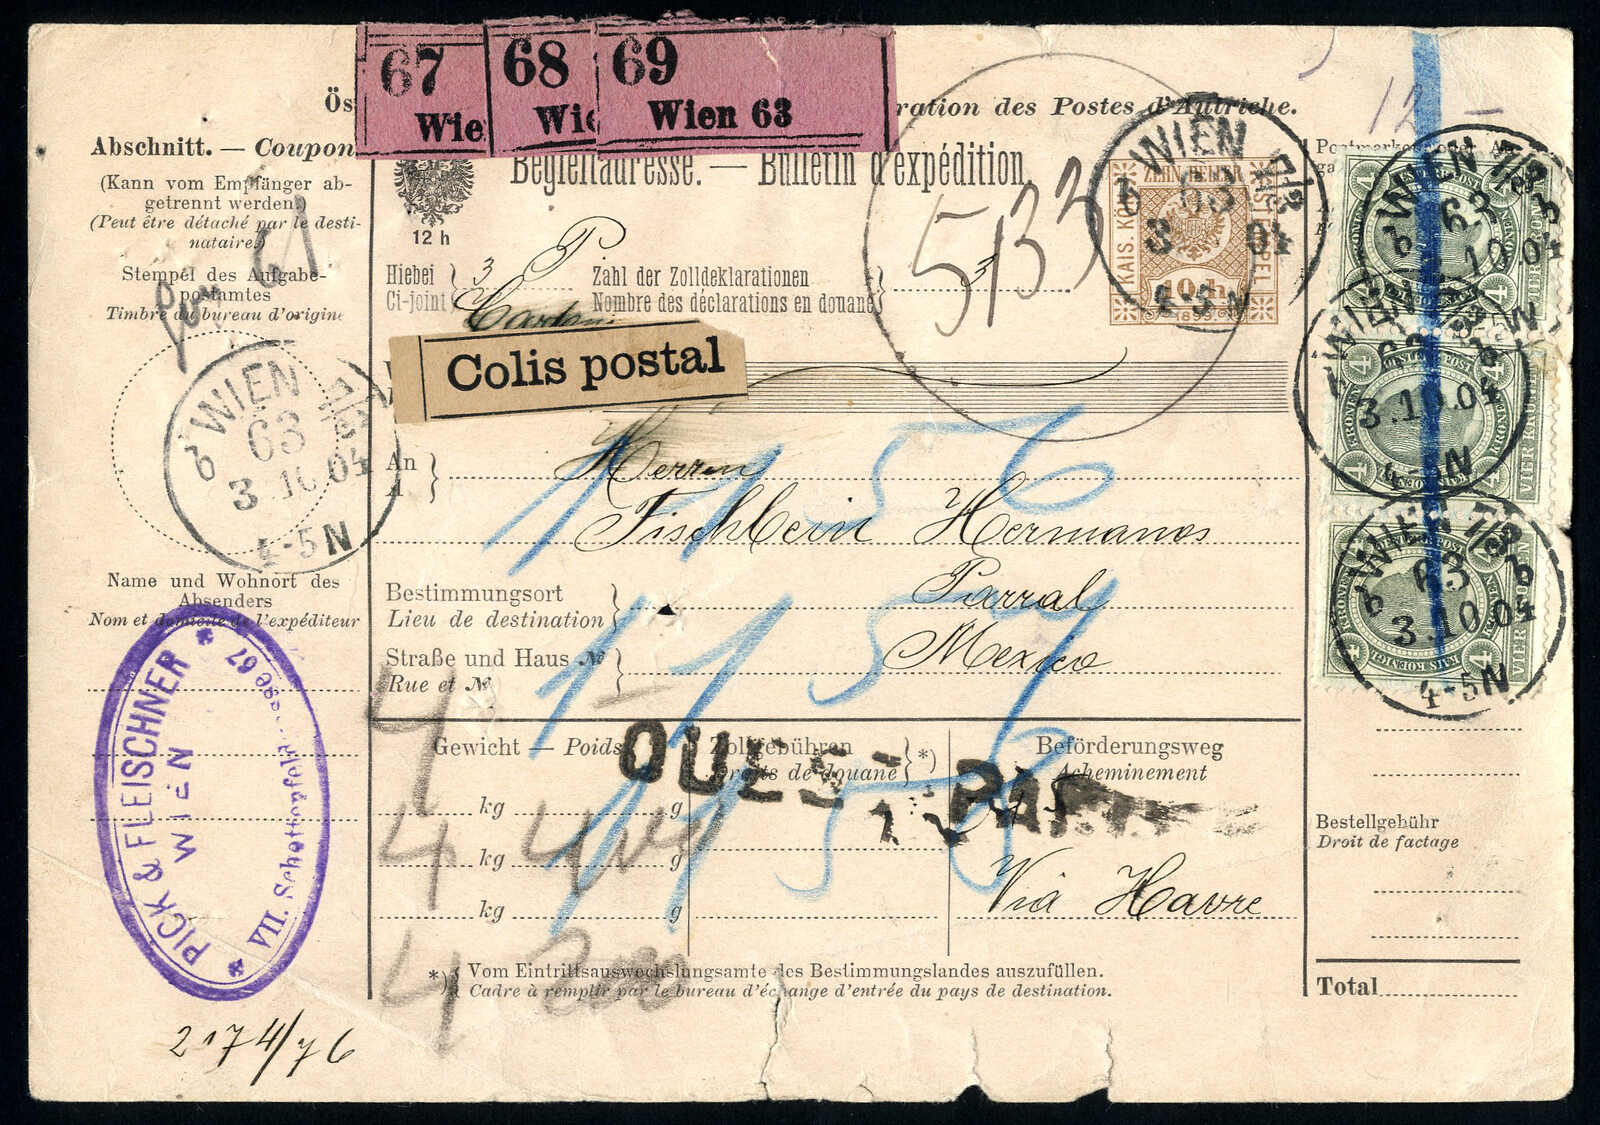 67
Wie
68
Wie
69
Wien 63
Ös
ration des Postes d'Autriche.
12
Abschnitt. — Coupon
(Kann vom Empfänger ab-
getrennt werden)
(Peut être détaché par le desti-
nataire)
Stempel des Aufgabe-
postamtes
Timbre du bureau d'origine
WIEN 7/2
63
b
3.10.04
4-5N
Name und Wohnort des
Absenders
Nom et domicile de l'expéditeur
PICK & FLEISCHNER
WIEN
VII. Schottenfeldgasse 67
2174/76
Begleitadresse. — Bulletin d'expédition.
12 h
Hiebei
Ci-joint
3
Zahl der Zolldeklarationen
Nombre des déclarations en douane
3
Colis postal
5133
ZEHN HELLER
KAIS. KÖN.
ÖST. STEMPEL
10 h
WIEN
63
3 04
4-5N
An
A
Herren
Fischbein Hermanos
Bestimmungsort
Lieu de destination
Parral
Mexico
Straße und Haus №
Rue et №
1156
1157
1158
Gewicht — Poids
kg g
kg g
kg g
4
4
4
4
Zollgebühren
Droits de douane
*)
Beförderungsweg
Acheminement
Viâ Havre
*) Vom Eintrittsauswechslungsamte des Bestimmungslandes auszufüllen.
Cadre à remplir par le bureau d'échange d'entrée du pays de destination.
WIEN 7/2
63
b
10.04
4
WIEN
63
3.10.04
4-5N
4
VIER KRONEN
WIEN 7/2
63
b
3.10.04
4-5N
4
VIER KRONEN
Bestellgebühr
Droit de factage
Total